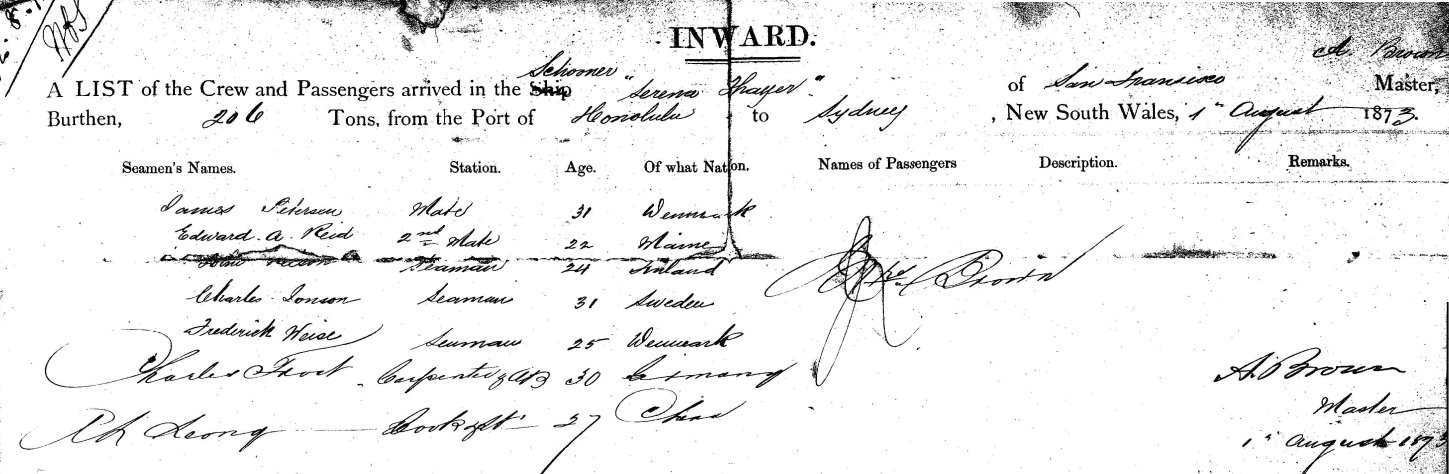 INWARD.
A. Brown
Schooner
A LIST of the Crew and Passengers arrived in the Ship "Serena Thayer" of San Fransisco Master,
Burthen, 206 Tons, from the Port of Honolulu to Sydney, New South Wales, 1st August 1873.
Seamen's Names. Station. Age. Of what Nation. Names of Passengers Description. Remarks.
James Petersen Mate 31 Denmark
Edward. A. Reid 2nd Mate 22 Maine
Seaman 24 Finland
Charles Jonson Seaman 31 Sweden
Mrs Brown
Frederick Weise Seaman 25 Denmark
Charles Frost Carpenter & AB 30 Germany
A. Brown
Ah Leong Cook & St 27
Master
1st August 1873